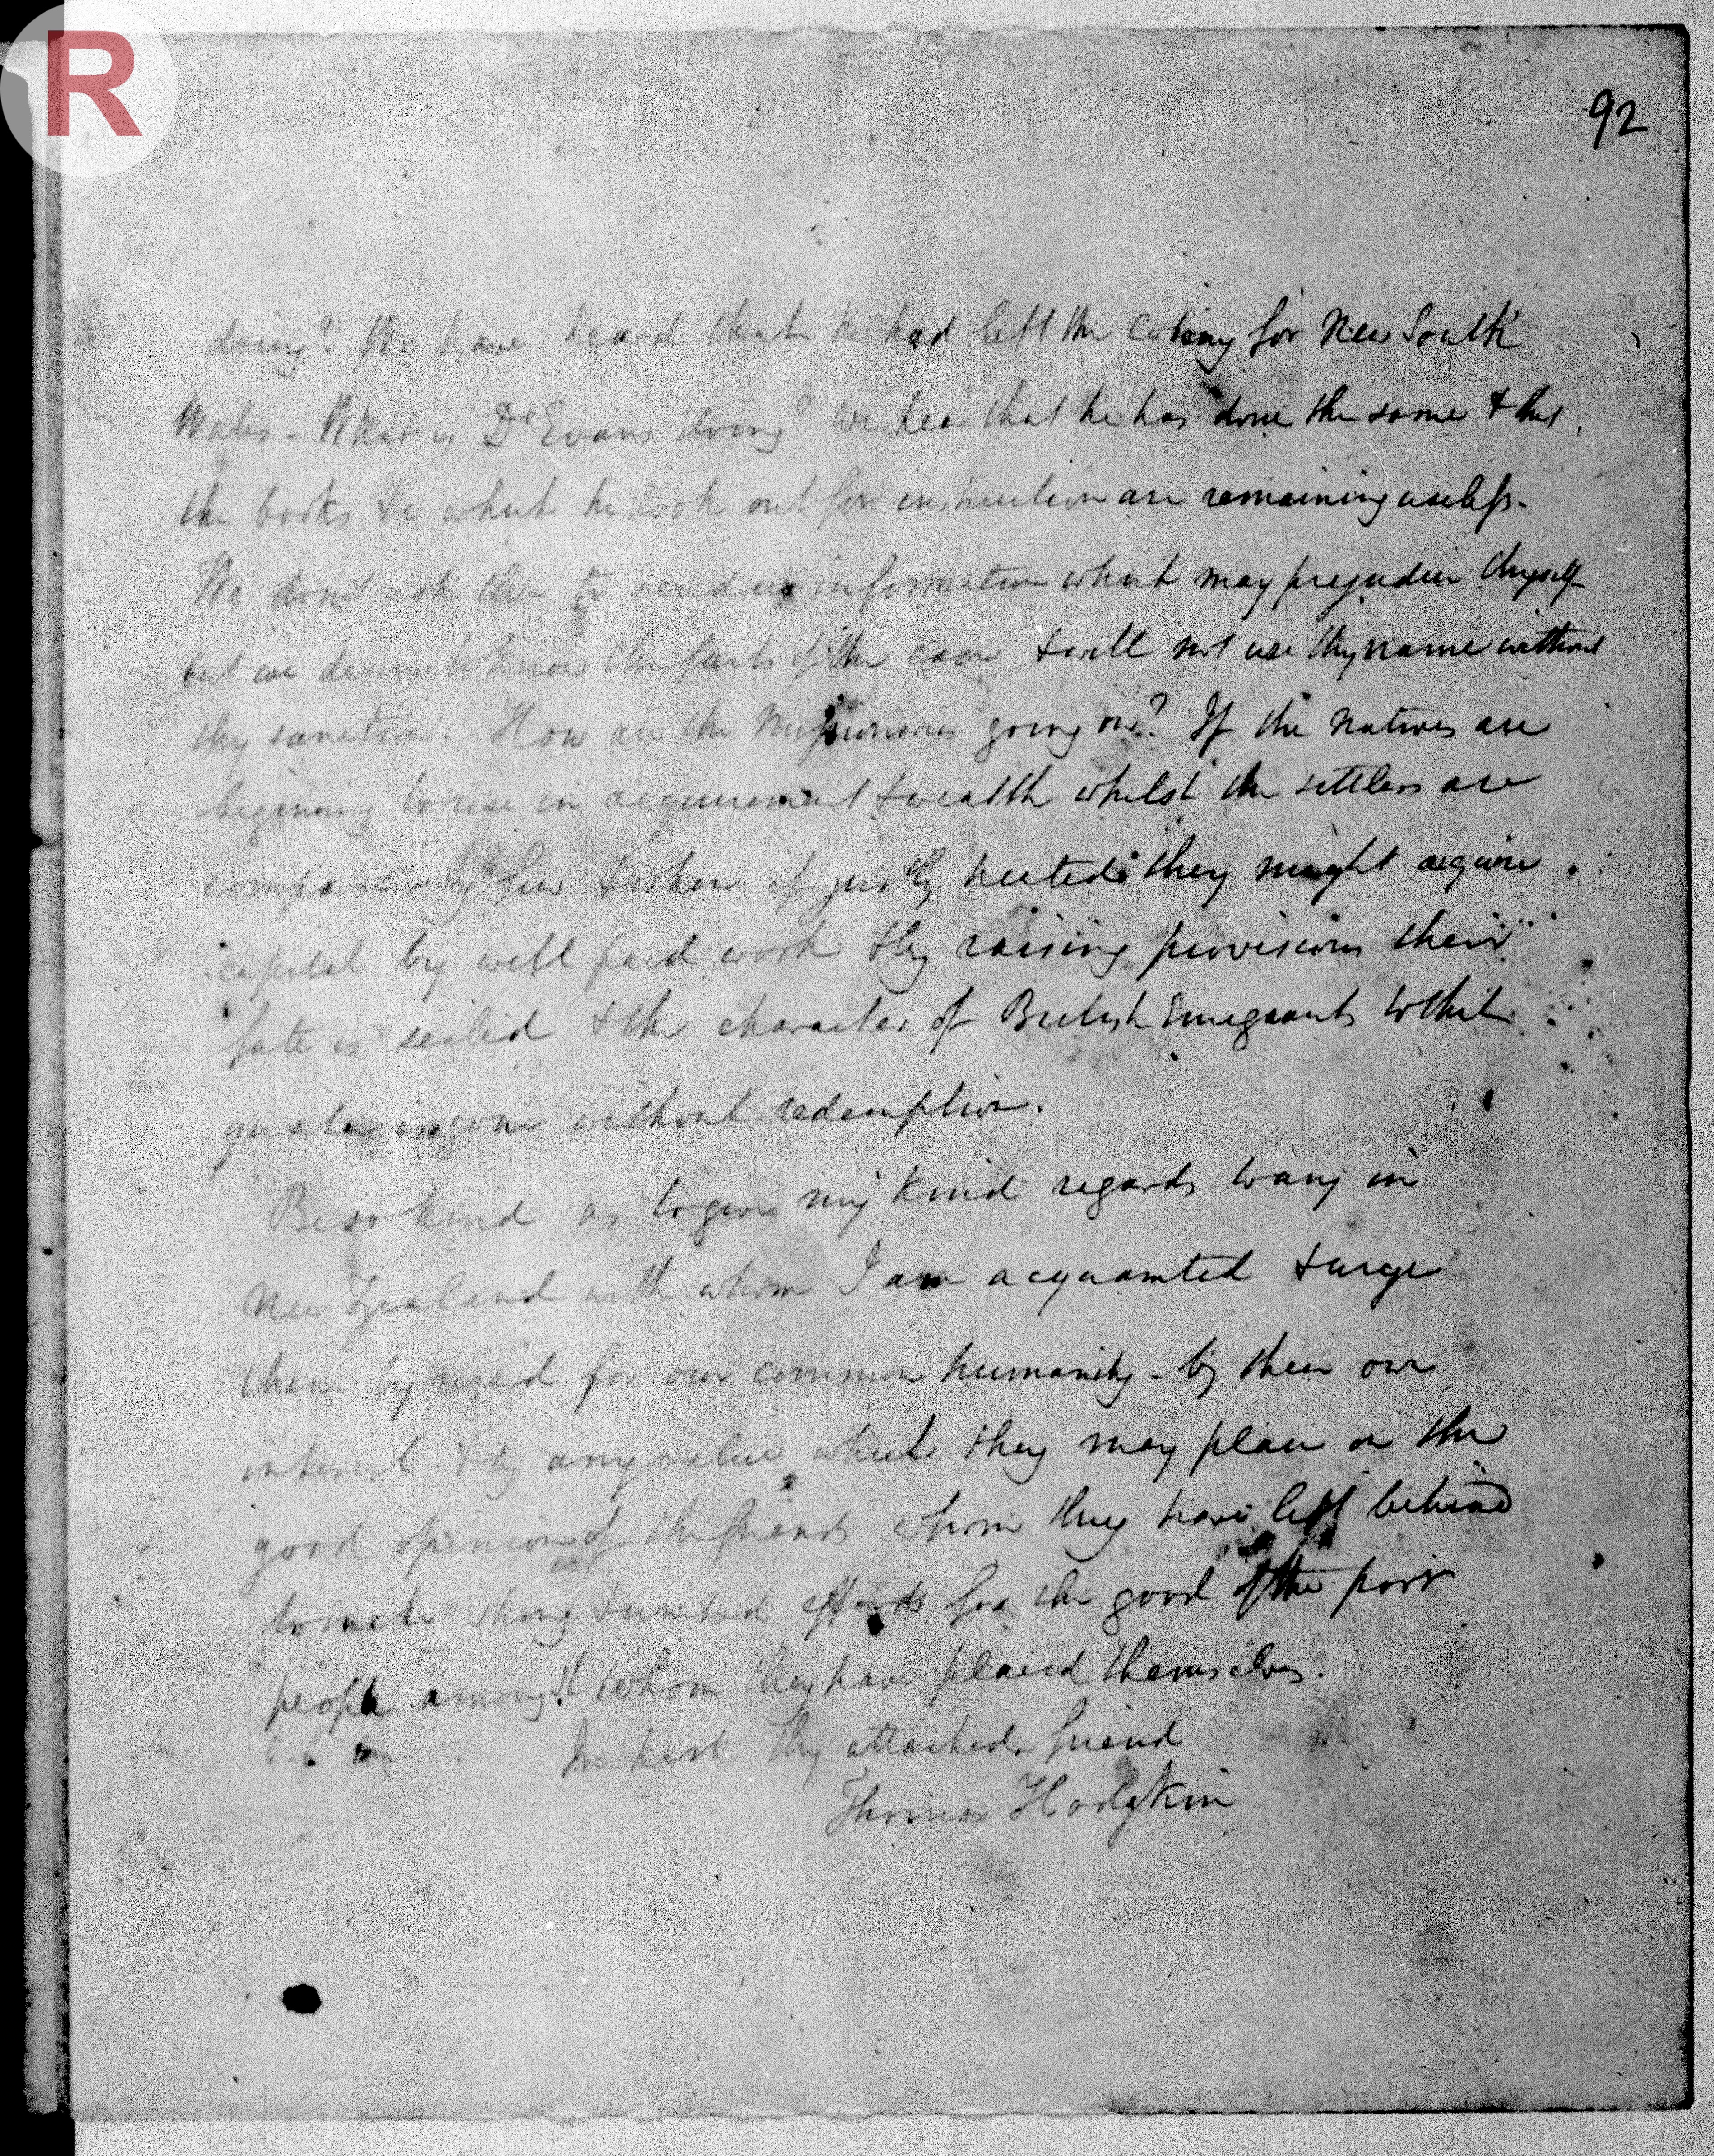 R
92
doing? We have heard that he had left the Colony for New South
Wales - What is Dr Evans doing? We hear that he has done the same & that
the books &c which he took out for instruction are remaining useless -
We dont ask thee to send us information which may prejudice thyself
but we desire to know the facts of the case & will not use thy name without
thy sanction. How are the Missionaries going on? If the natives are
beginning to rise in acquirement & wealth whilst the settlers are
comparatively few & when if justly treated they might acquire
capital by well paid work & by raising provisions their
fate is sealed & the character of British Emigrants to that
quarter is gone without redemption.
Be so kind as to give my kind regards to any in
New Zealand with whom I am acquainted & urge
them by regard for our common humanity - by their own
interest & by any value which they may place on the
good opinion of the friends whom they have left behind
to make strong & united efforts for the good of the poor
people amongst whom they have placed themselves.
thy attached friend
Thomas Hodgkin